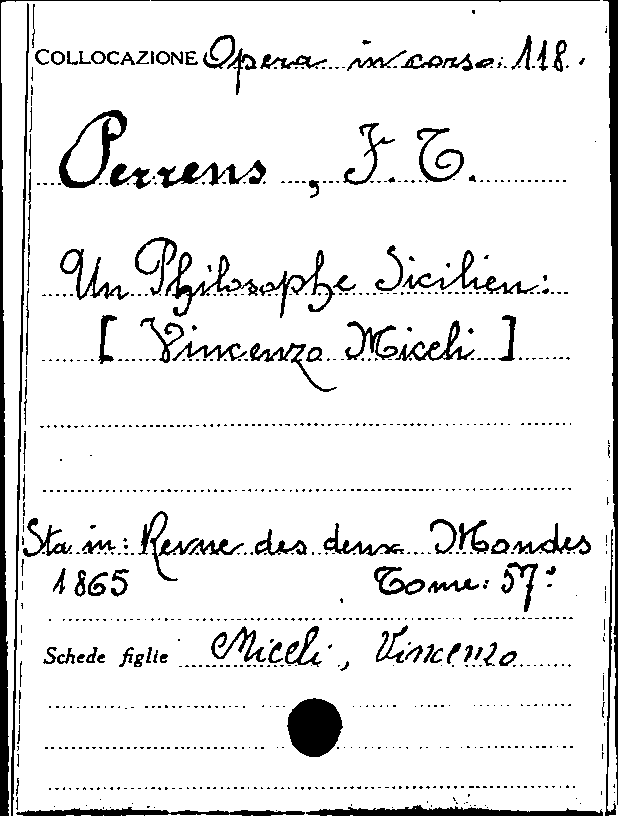 COLLOCAZIONE Opera in corso. 118.
Perrens, F. T.
Un Philosophe Sicilien:
[ Vincenzo Miceli ]
Sta in: Revue des deux Mondes
1865 Tome: 57º
Schede figlie Miceli, Vincenzo